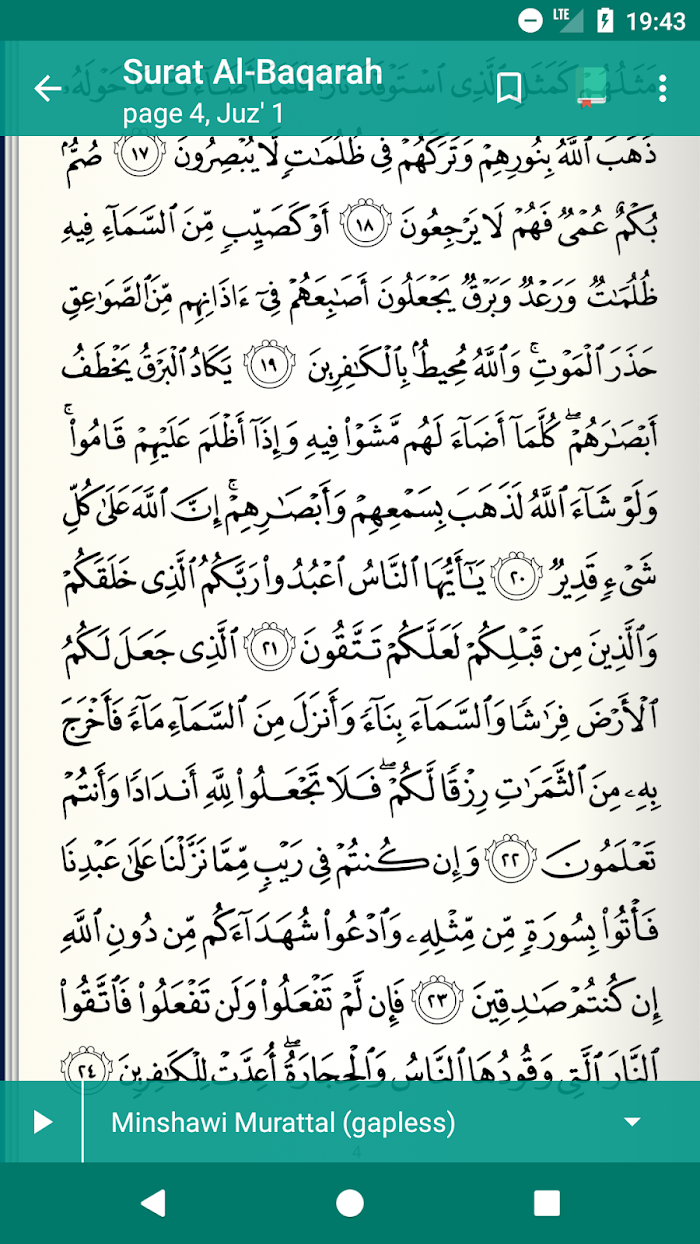 LTE 19:43
Surat Al-Baqarah
page 4, Juz' 1
مَثَلُهُمْ كَمَثَلِ ٱلَّذِى ٱسْتَوْقَدَ نَارًا فَلَمَّآ أَضَآءَتْ مَا حَوْلَهُۥ
ذَهَبَ ٱللَّهُ بِنُورِهِمْ وَتَرَكَهُمْ فِى ظُلُمَٰتٍ لَّا يُبْصِرُونَ ١٧ صُمٌّۢ
بُكْمٌ عُمْىٌ فَهُمْ لَا يَرْجِعُونَ ١٨ أَوْ كَصَيِّبٍ مِّنَ ٱلسَّمَآءِ فِيهِ
ظُلُمَٰتٌ وَرَعْدٌ وَبَرْقٌ يَجْعَلُونَ أَصَٰبِعَهُمْ فِىٓ ءَاذَانِهِم مِّنَ ٱلصَّوَٰعِقِ
حَذَرَ ٱلْمَوْتِ ۚ وَٱللَّهُ مُحِيطٌۢ بِٱلْكَٰفِرِينَ ١٩ يَكَادُ ٱلْبَرْقُ يَخْطَفُ
أَبْصَٰرَهُمْ ۖ كُلَّمَآ أَضَآءَ لَهُم مَّشَوْا۟ فِيهِ وَإِذَآ أَظْلَمَ عَلَيْهِمْ قَامُوا۟ ۚ
وَلَوْ شَآءَ ٱللَّهُ لَذَهَبَ بِسَمْعِهِمْ وَأَبْصَٰرِهِمْ ۚ إِنَّ ٱللَّهَ عَلَىٰ كُلِّ
شَىْءٍ قَدِيرٌ ٢٠ يَٰٓأَيُّهَا ٱلنَّاسُ ٱعْبُدُوا۟ رَبَّكُمُ ٱلَّذِى خَلَقَكُمْ
وَٱلَّذِينَ مِن قَبْلِكُمْ لَعَلَّكُمْ تَتَّقُونَ ٢١ ٱلَّذِى جَعَلَ لَكُمُ
ٱلْأَرْضَ فِرَٰشًا وَٱلسَّمَآءَ بِنَآءً وَأَنزَلَ مِنَ ٱلسَّمَآءِ مَآءً فَأَخْرَجَ
بِهِۦ مِنَ ٱلثَّمَرَٰتِ رِزْقًا لَّكُمْ ۖ فَلَا تَجْعَلُوا۟ لِلَّهِ أَندَادًا وَأَنتُمْ
تَعْلَمُونَ ٢٢ وَإِن كُنتُمْ فِى رَيْبٍ مِّمَّا نَزَّلْنَا عَلَىٰ عَبْدِنَا
فَأْتُوا۟ بِسُورَةٍ مِّن مِّثْلِهِۦ وَٱدْعُوا۟ شُهَدَآءَكُم مِّن دُونِ ٱللَّهِ
إِن كُنتُمْ صَٰدِقِينَ ٢٣ فَإِن لَّمْ تَفْعَلُوا۟ وَلَن تَفْعَلُوا۟ فَٱتَّقُوا۟
ٱلنَّارَ ٱلَّتِى وَقُودُهَا ٱلنَّاسُ وَٱلْحِجَارَةُ ۖ أُعِدَّتْ لِلْكَٰفِرِينَ ٢٤
Minshawi Murattal (gapless)
4